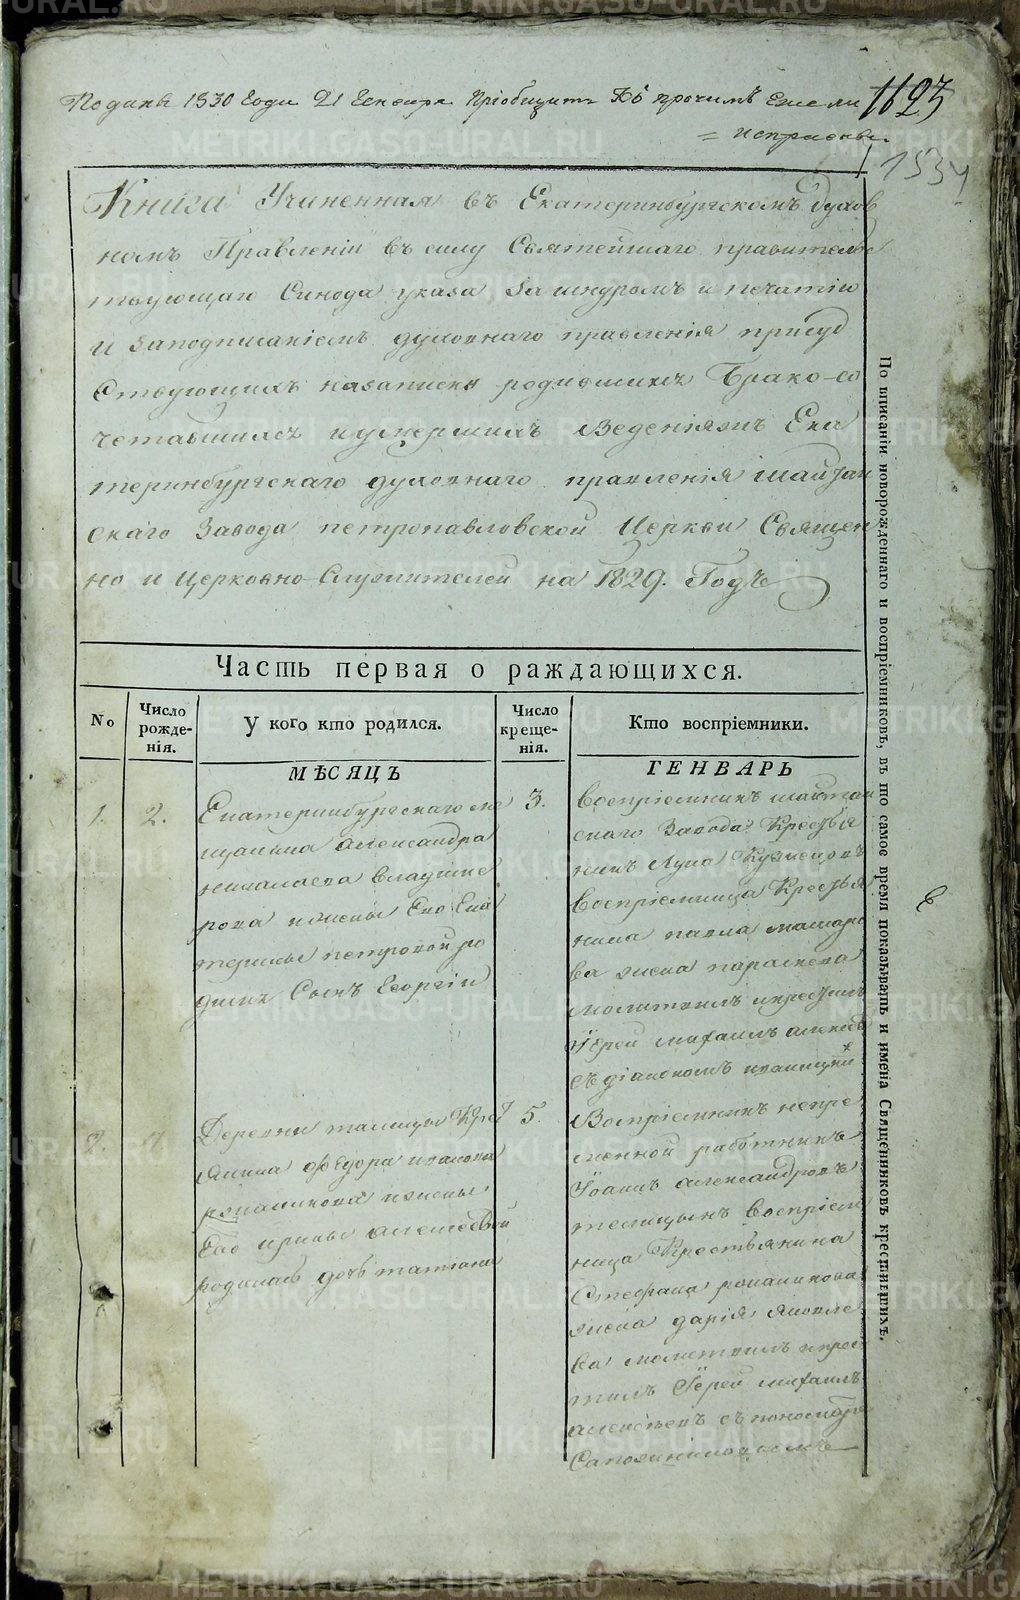 Подана 1830 Года 21 Генваря Пріобщить Къ прочимъ Ежели
= исправны.
1123
1534
Книга Учиненная въ Екатеринбургскомъ Духов
номъ Правленіи въ силу Святейшаго правительс
твующаго Синода указа, за шнуромъ и печатью
и заподписаніемъ духовнаго правленія присуд
ствующихъ назаписку родившихся Брако-со
четавшихся иумершихъ Ведения Ека
теринбургскаго духовнаго правленія шайтан
скаго Завода петропавловской Церкви Священ
но и Церковно-Служителей на 1829. Годъ
Часть первая о раждающихся.
No
Число рожде-нія.
У кого кто родился.
Число креще-нія.
Кто воспріемники.
МѢСЯЦЪ
ГЕНВАРЬ
1.
2.
Екатеринбургскаго ме
щанина александра
николаева владиме
рова ижены Его Ека
терины петровой ро
дился Сынъ Георгій
3.
Воспріемникъ шайтан
скаго Завода Крестья
нинъ Лука Кузнецовъ
Воспріемница Крестья
нина павла макаро
ва жена параскева
молитвилъ икрестилъ
Іерей михаилъ алексѣев
съ діакономъ
2.
Деревни талицы Крест
янина Федора иванова
романикова ижены
Его ирины алексѣевой
родилась дочь татіана
5.
Воспріемникъ непре
менной работникъ
Іоаннъ александровъ
Воспріем
ница Крестьянина
Стефана романикова
жена дарія яковле
ва молитвилъ икрес
тилъ Іерей михаилъ
алексѣевъ съ пономаре
По вписаніи новорожденнаго и воспріемниковъ, въ то самое время показывать и имена Священниковъ крестившихъ.
METRIKI.GASO-URAL.RU